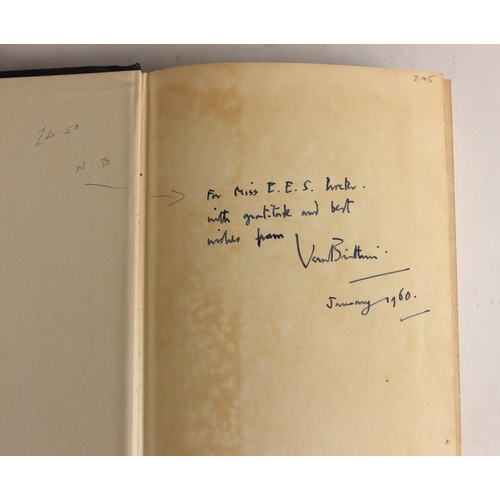 2.95
£4.50
N B
For Miss E. E. S. Procter.
with gratitude and best
wishes from
Vera Brittain.
January 1960.